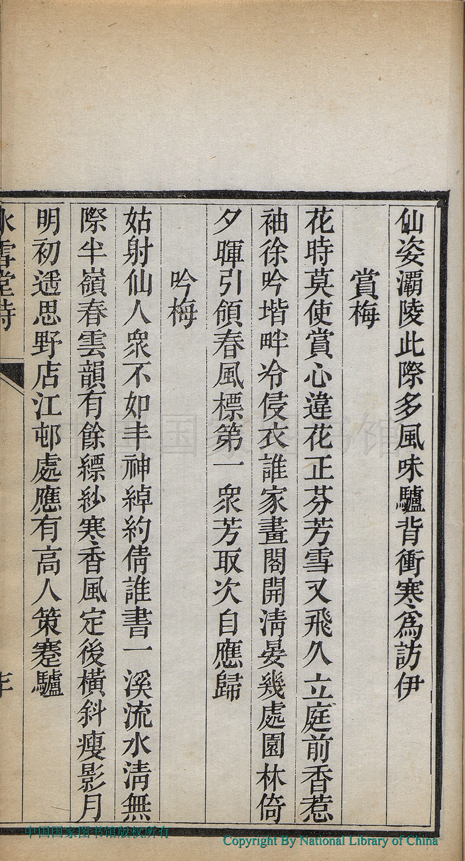 仙姿灞陵此際多風味驢背衝寒爲訪伊
賞梅
花時莫使賞心違花正芬芳雪又飛久立庭前香惹
袖徐吟堦畔冷侵衣誰家畫閣開淸晏幾處園林倚
夕暉引領春風標第一衆芳取次自應歸
吟梅
姑射仙人衆不如丰神綽約倩誰書一溪流水淸無
際半嶺春雲韻有餘縹緲寒香風定後橫斜瘦影月
明初遥思野店江邨處應有高人策蹇驢
冰雪堂詩
中国国家图书馆版权所有
Copyright By National Library of China